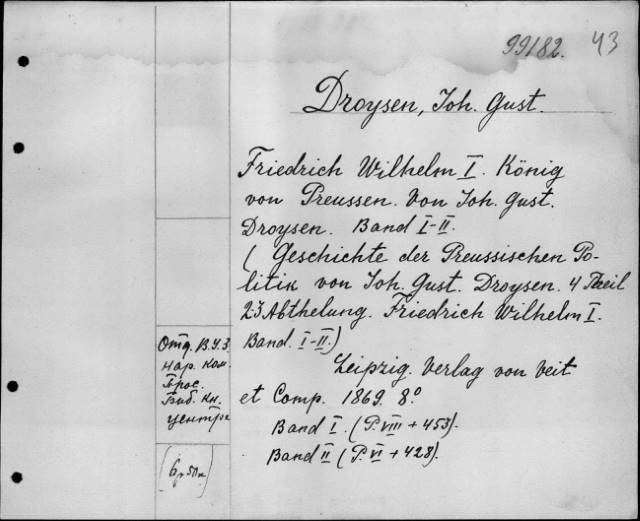 99182. 43
Droysen, Joh. Gust.
Friedrich Wilhelm I. König
von Preussen. Von Joh. Gust.
Droysen. Band I-II.
(Geschichte der Preussischen Po-
litik von Joh. Gust. Droysen. 4 Theil
2-3 Abthelung. Friedrich Wilhelm I.
Band. I-II.)
Leipzig. Verlag von Veit
et Comp. 1869. 8º
Band I. (P. VIII + 453).
Band II (P. VI + 428).
Отд. В.У.З.
Нар. Ком.
Прос.
Биб. Кн.
центра